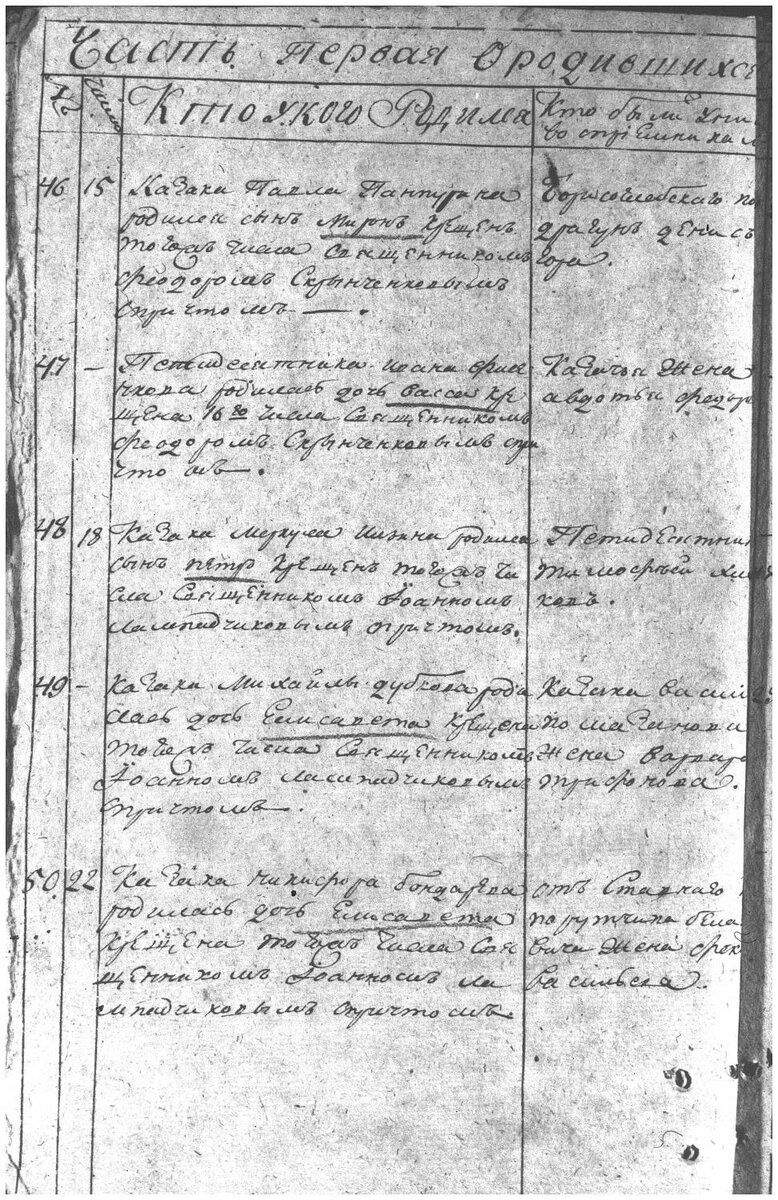 Часть первая О родившихся
№
Число
Кто у кого родился
Кто были у них
воспрiемникам
46 15 Казака Павла
родился сынъ Миронъ крещенъ
тогожъ числа священникомъ
феодоромъ Скрынченковымъ
спричтомъ — .
Борисоглебского по
драгунъ денисъ
47 — Петидесятника ивана
родилась дочь васса кре
щена 16го числа священникомъ
феодоромъ Скрынченковымъ спри
чтомъ — .
Казачья жена
авдотья федор
48 18 Казака Меркула родился
сынъ петръ крещенъ тогожъ чи
сла священникомъ Iоанномъ
Лампадчиковымъ спричтомъ.
Петидесятник
тимофей
ковъ .
49 — казака михайлы дубкова роди
лась дочь Елисавета крещена
тогожъ числа священникомъ
Iоанномъ лампадчиковымъ
спричтомъ — .
Казака васил
жена варвара
трифонова .
50 22 Казака никифора бондарева
родилась дочь Елисавета
крещена тогожъ числа свя
щенникомъ Iоанномъ ла
мпадчиковымъ спричтомъ.
отъ
порутчика
жена
васильева .